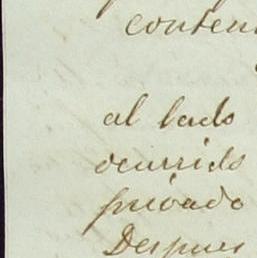 conten
al lado
ocurrido
privado
Despues